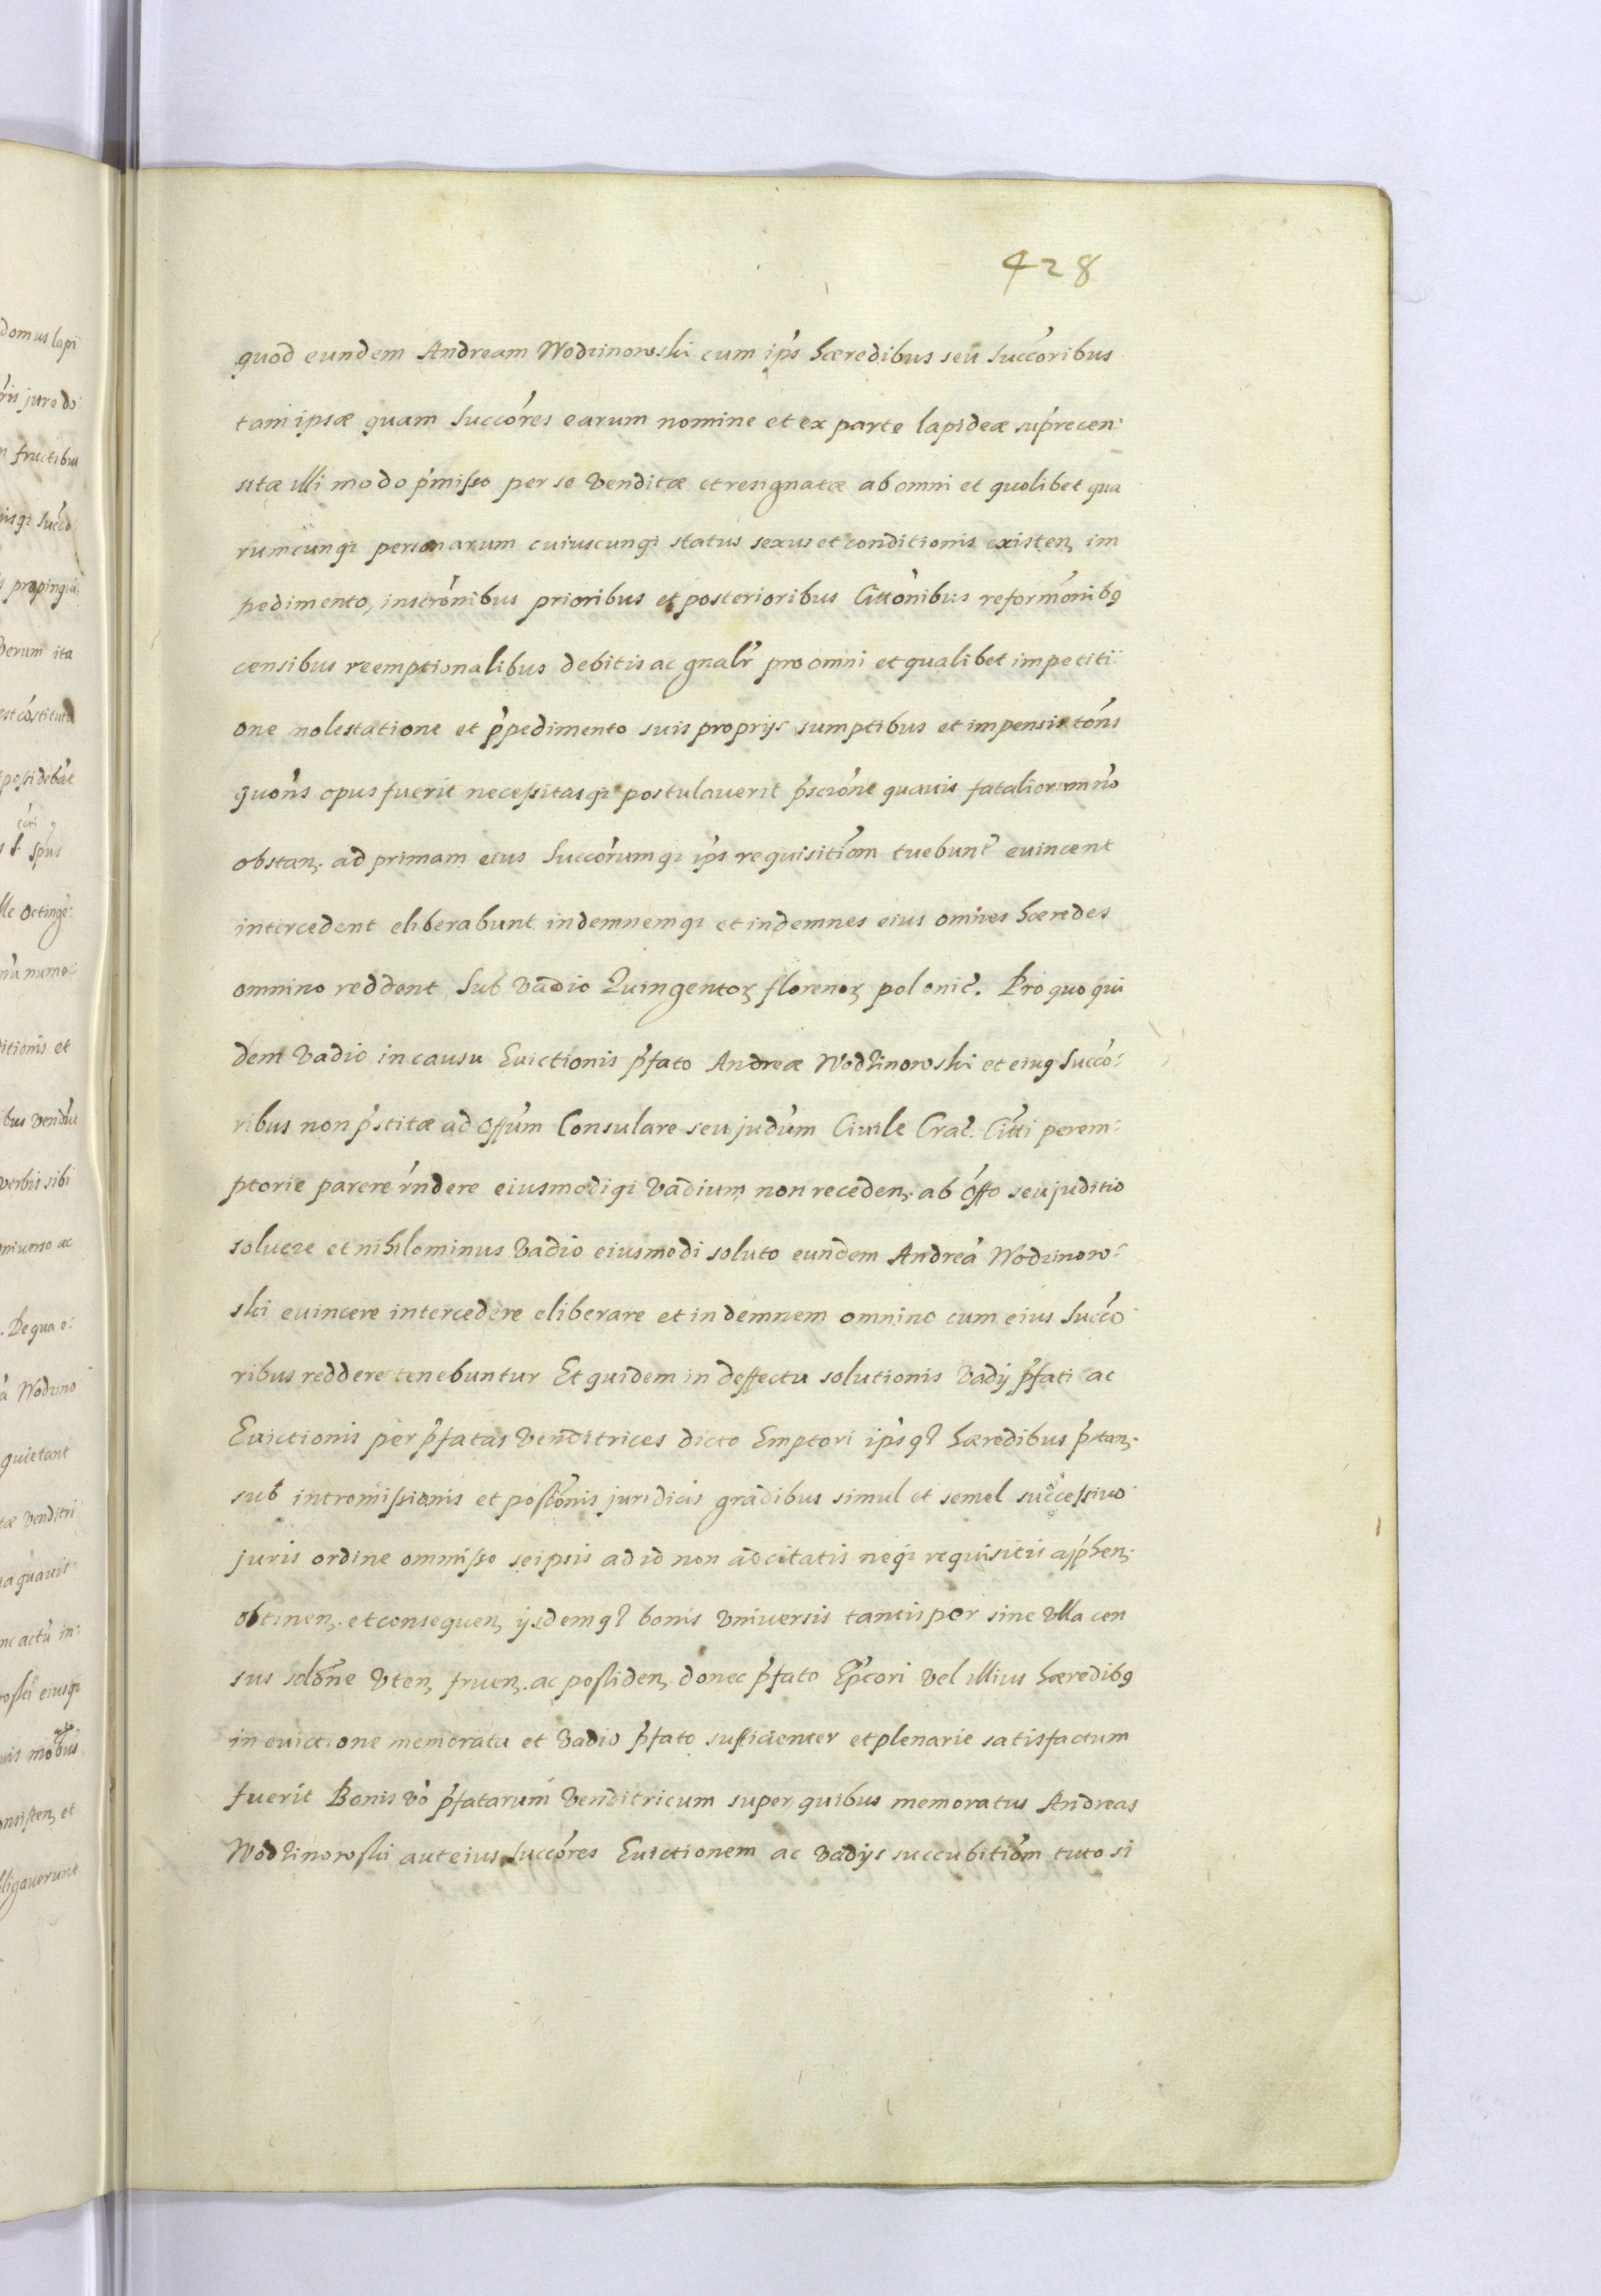 428
quod eundem Andream Wodzinowski cum ip̃s hæredibus seu Succõribus
tam ipsæ quam Succõres earum nomine et ex parte lapideæ sup̃recen:
sitæ illi modo p̃misso per se venditæ et resignatæ ab omni et quolibet qua
rumcunq; personarum cuiuscunq; status sexus et conditionis existen, im
pedimento, inscrõnibus prioribus et posterioribus Cittõnibus reformõnibus
censibus reemptionalibus debitis ac gnalr̃ pro omni et qualibet impetiti:
one molestatione et p̃pedimento suis proprijs sumptibus et impensis tõns
quõns opus fuerit necessitasq; postulauerit p̃scrõne quauis fataliorum nõ
obstan. ad primam eius Succõrumq; ip̃s requisitiõm tuebunt~ euincent
intercedent eliberabunt indemnemq; et indemnes eius omnes hæredes
omnino reddent Sub vadio Quingentoꝝ florenoꝝ polonic̃. Pro quo qui
dem vadio in causa Euictionis p̃fato Andreæ Wodzinowski et eius Succo:
ribus non p̃stitæ ad Offũm Consulare seu judũm Ciuile Crac̃. Citti perem:
ptorie parere rñdere eiusmodiq; vadium non receden. ab offo seu juditio
soluere et nihilominus vadio eiusmodi soluto eundem Andreã Wodzinow:
ski euincere intercedere eliberare et indemnem omnino cum eius Succõ
ribus reddere tenebuntur Et quidem in deffectu solutionis vadij p̃fati ac
Euictionis per p̃fatas venditrices dicto Emptori ip̃sq; hæredibus p̃stan.
sub intromissionis et possõnis juridicis gradibus simul et semel successiuo
juris ordine ommisso seipsis ad id non adcitatis neq; requisitis app̃hen.
obtinen. et consequen, ijsdemq; bonis vniversis tantisper sine vlla cen
sus solõne vten, fruen. ac possiden, donec p̃fato Ep̃tori vel illius hæredibus
in euictione memorata et vadio p̃fato sufficienter et plenarie satisfactum
fuerit Bonis vo p̃fatarum venditricum super quibus memoratus Andreas
Wodzinowski aut eius Succõres Euictionem ac vadijs succubitiõm tuto si